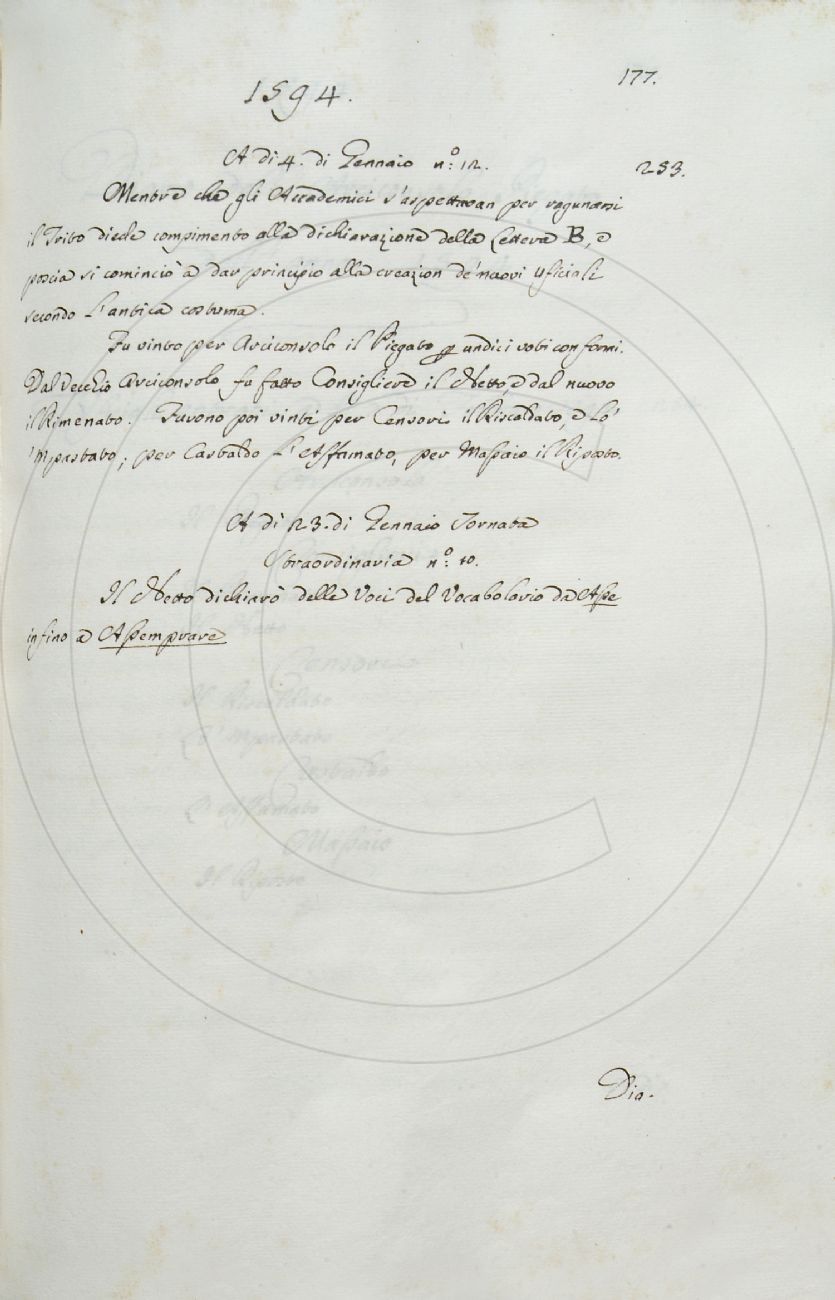 177.
1594.
A di 4. di Gennaio n.º 12.
253.
Mentre che gli Accademici s'aspettavan per ragunarsi
il Trito diede compimento alla dichiarazione della Lettera B, e
poscia si cominciò a dar principio alla creazion de' nuovi Uficiali
secondo l'antica costuma.
Fu vinto per Arciconsolo il Piegato per undici voti conformi.
Dal Vecchio Arciconsolo fu fatto Consigliere il Netto, e dal nuovo
il Rimenato. Furono poi vinti per Censori il Riscaldato, e Lo
'Mpastato; per Castaldo L'Affumato, per Massaio il Riposto.
A di 23. di Gennaio Tornata
Straordinaria n.º 10.
Il Netto dichiarò delle Voci del Vocabolario da Asse
infino a Assemprare
Dia.